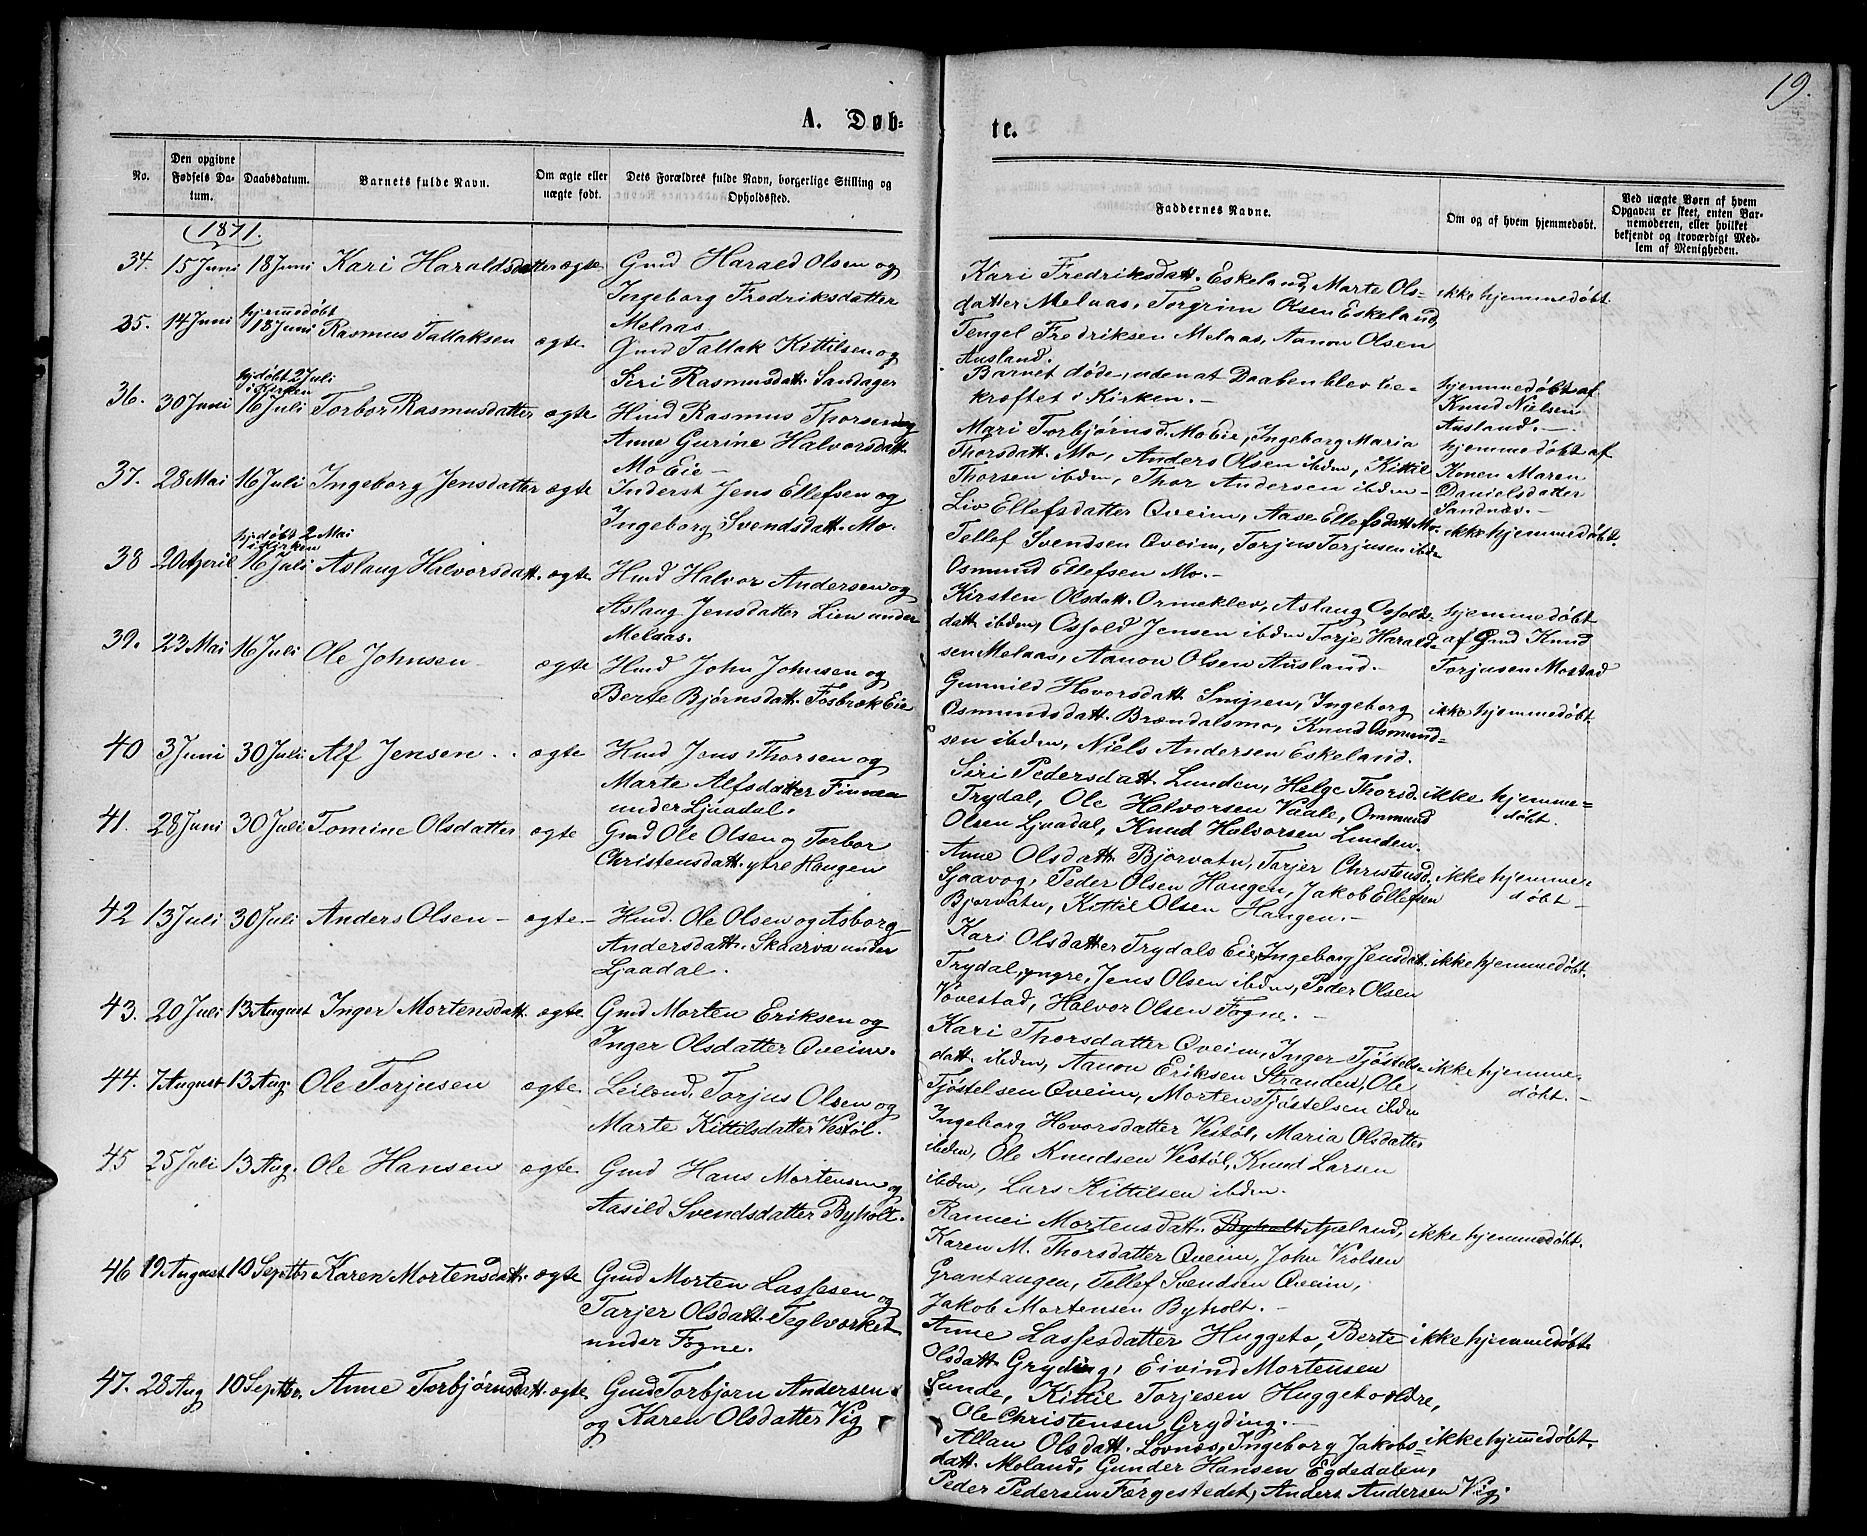 19.
A. Døb-
te.
No.
Den opgivne Fødsels Da-
tum.
Daabsdatum.
Barnets fulde Navn.
Om ægte eller
uægte født.
Dets Forældres fulde Navn, borgerlige Stilling og
Opholdssted.
Faddernes Navne.
Om og af hvem hjemmedøbt.
Ved uægte Børn af hvem
Opgaven er skeet, enten Bar-
nemoderen, eller hvilket
bekjendt og troværdigt Med-
lem af Menigheden.
1871.
34. 15 Juni 18 Juni Kari Haraldsdatter ægte Gmd Harald Olsen og
Ingeborg Fredriksdatter
Melaas
Kari Fredriksdatt. Eskeland, Marte Ols-
datter Melaas, Torgrim Olsen Eskeland,
Tengel Fredriksen Melaas, Aanon Olsen
Ausland.
ikke hjemmedøbt.
35. 14 Juni hjemmedøbt
18 Juni Rasmus Tallaksen ægte Gmd Tallak Kittilsen og
Siri Rasmusdatt. Sandager
Barnet døde, uden at Daaben blev be-
kræftet i Kirken. -
hjemmedøbt af
Knud Nielsen
Ausland. -
36. 30 Juni hjdøbt 2 Juli
i Kirken
16 Juli Torbor Rasmusdatter ægte Hmd Rasmus Thorsen og
Anne Gurine Halvorsdatt.
Mo Eie -
Mari Torbjørnsd. Mo Eie, Ingeborg Maria
Thorsdatt. Mo, Anders Olsen ibdm, Kittil
Thorsen ibdm, Thor Andersen ibdm -
hjemmedøbt af
Konen Maren
Danielsdatter
Sandnæs. -
37. 28 Mai 16 Juli Ingeborg Jensdatter ægte Inderst Jens Ellefsen og
Ingeborg Svendsdatt. Mo.
Liv Ellefsdatter Qveim, Aase Ellefsdatt. Mo
Tellef Svendsen Qveim, Torjus Torjusen ibdm
Osmund Ellefsen Mo. -
ikke hjemmedøbt.
38 20 April hjdøbt 2 Mai
i Kirken
16 Juli Aslaug Halvorsdatt. ægte Hmd Halvor Andersen og
Aslaug Jensdatter Lien under
Melaas.
Kirsten Olsdatt. Ormeklev, Aslaug Osfolds-
datt. ibdm, Osfold Jensen ibdm Torje Harald-
sen Melaas, Aanon Olsen Ausland. -
hjemmedøbt
af Gmd Knud
Torjusen Mostad
39. 23 Mai 16 Juli Ole Johnsen - ægte Hmd John Johnsen og
Berte Bjørnsdatt. Fosbræk Eie
Gunnild Hovorsdatt. Snipen, Ingeborg
Osmundsdatt. Brændalsmo, Knud Osmund-
sen ibdm, Niels Andersen Eskeland.
ikke hjemmedøbt
40 3 Juni 30 Juli Alf Jensen - ægte Hmd Jens Thorsen og
Marte Alfsdatter Finnæn
under Ljaadal.
Siri Pedersdatt. Lunden, Helge Thorsd.
Trydal, Ole Halvorsen Vaale, Ommund
Olsen Ljaadal, Knud Halvorsen Lunden.
ikke hjemme-
døbt.
41. 28 Juni 30 Juli Tomine Olsdatter ægte Gmd Ole Olsen og Torbor
Christensdatt. ytre Haugen
Anne Olsdatt. Bjorvatn, Tarjer Christensd.
Sjaavog, Peder Olsen Haugen, Jakob Ellefsen
Bjorvatn, Kittil Olsen Haugen. -
ikke hjemme-
døbt -
42 13 Juli 30 Juli Anders Olsen - ægte - Hmd. Ole Olsen og Asborg
Andersdatt. Skaarva under
Ljaadal.
Kari Olsdatter Trydals Eie, Ingeborg Jensdatt.
Trydal, yngre, Jens Olsen ibdm, Peder Olsen
Vovestad, Halvor Olsen Fogne. -
ikke hjemmedøbt.
43. 20 Juli 13 August Inger Mortensdatt. ægte Gmd Morten Eriksen og
Inger Olsdatter Qveim.
Kari Thorsdatter Qveim, Inger Tjøstels-
datt. ibdm, Aanon Eriksen Stranden, Ole
Tjøstelsen Qveim, Morten Tjøstelsen ibdm
ikke hjemme-
døbt. -
44. 7 August 13 Aug. Ole Torjusen ægte Leilænd. Torjus Olsen og
Marte Kittilsdatter Vestøl.
Ingeborg Hovorsdatter Vestøl, Maria Olsdatter
ibdm, Ole Knudsen Vestøl, Knud Larsen
ibdm, Lars Kittilsen ibdm.
45 25 Juli 13 Aug. Ole Hansen ægte Gmd Hans Mortensen og
Aasild Svendsdatter Byholt.
Rannei Mortensdatt. Byholt Apeland,
Karen M. Thorsdatter Qveim, John Vrolsen
Grantangen, Tellef Svendsen Qveim,
Jakob Mortensen Byholt. -
ikke hjemmedøbt.
46 19 August 10 Septbr Karen Mortensdatt. ægte Gmd Morten Lassesen og
Tarjer Olsdatt. Teglværket
under Fogne.
Anne Lassesdatter Huggeto, Berte
Olsdatt. Gryding, Eivind Mortensen
Sunde, Kittil Torjesen Huggeto ældre,
Ole Christensen Gryding. -
ikke hjemmedøbt.
47. 28 Aug 10 Septbr. Anne Torbjørnsdatt. ægte Gmd Torbjørn Andersen
og Karen Olsdatter Vig
Allau Olsdatt. Lovnæs, Ingeborg Jakobs-
datt. Moland, Gunder Hansen Egdedalen,
Peder Pedersen Færgestedet, Anders Andersen Vig.
ikke hjemmedøbt.